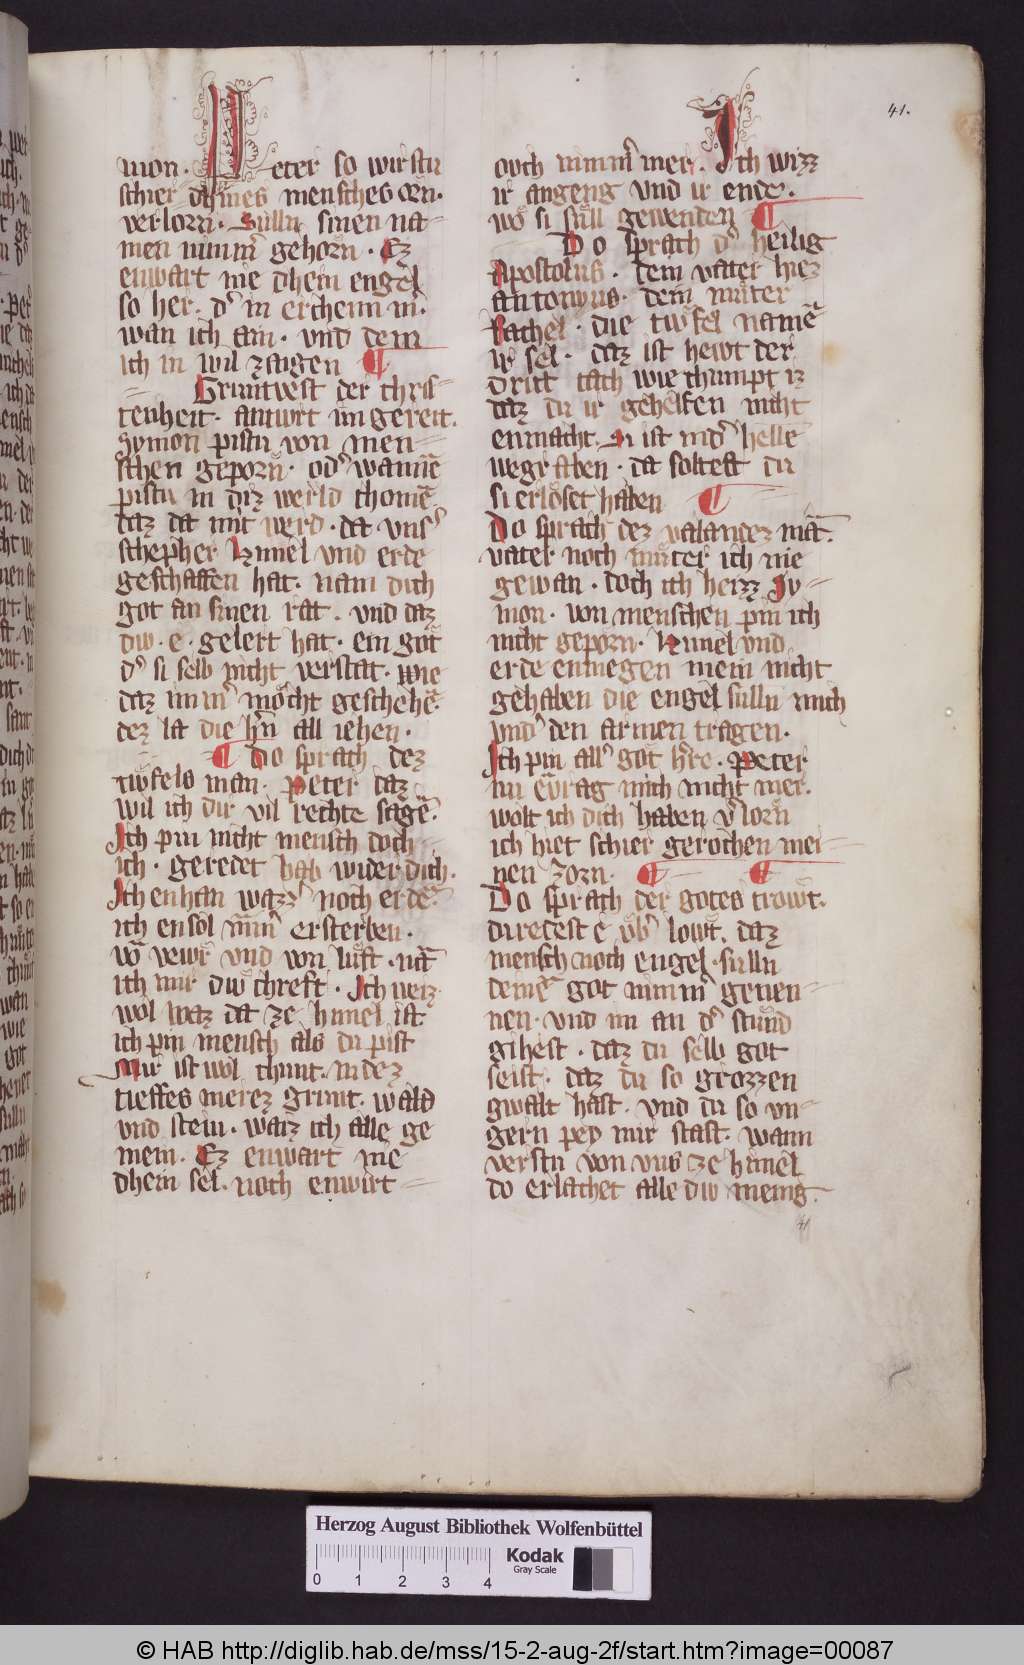 41.
mon. Peter so wirstu
schier dheines mensches orn.
verlorn. Sulln sinen na-
men nimmer gehorn. Ez
enwart nie dhein engel
so her. der in erchenn in.
wan ich ain. vnd dem
ich in wil zaigen ¶
Gruntvest der chris-
tenheit. antwrt im gereit.
Symon pistu von men-
schen geporn. oder wanne
pistu in diz werld chome.
daz da mit werd. da vnser
schepher himel vnd erde
geschaffen hat. nam dich
got an sinen rat. vnd daz
diw. e. gelert hat. ein got
der si selb nicht verstat. wie
daz immer mocht geschehe.
dez la die hrn all iehen.
¶ Do sprach dez
tiwfels man. Peter daz
wil ich dir vil rechte sage.
Ich pin nicht mensch doch
ich. geredet hab wider dich.
Ich enhan wazzer noch erde.
ich ensol nimmer ersterben.
vo vewr vnd von luft. nam
ich mir diw chreft. Ich weiz
wol waz da ze himel ist.
ich pin mensch als du pist
Mir ist wol chunt. in dez
tieffes merez grunt. wald
vnd stein. waiz ich alle ge
mein. Ez enwart nie
dhein sel. noch enwirt
ovch nimmer mer. Ich wizz
ir angeng vnd ir ende.
wo si sull gewenden ¶
Do sprach der heilig
Apostolus. dem vater hiez
antonyus. dem muter
Rachel. die tiwfel name
ir sel. daz ist hewt der
dritt tach wie chumpt iz
daz du ir gehelfen nicht
enmacht. Si ist in der helle
wegraben. da soltest du
si erloset haben ¶
Do sprach dez valandez man.
vater noch muter ich nie
gewan. doch ich herr Sy-
mon. von menschen pin ich
nicht geporn. Himel vnd
erde enmegen mein nicht
gehaben die engel sulln mich
vnder den armen tragen.
Ich pin aller got herre. Peter
nu ertrag mich nicht mer.
wolt ich dich haben verlorn
ich hiet schier gerochen mei-
nen zorn. ¶ ¶
Do sprach der gotes trowt.
du redest e vber lowt. daz
mensch noch engel. sulln
deine got nimmer geuen-
nen. vnd nu an der stund
gihest. daz du selb got
seist. daz du so grozzen
gwalt hast. vnd du so vn-
gern pey mir stast. wann
verstu von vns ze himel
do erlachet alle diw meing.
41
Herzog August Bibliothek Wolfenbüttel
0 1 2 3 4
Kodak
Gray Scale
© HAB http://diglib.hab.de/mss/15-2-aug-2f/start.htm?image=00087